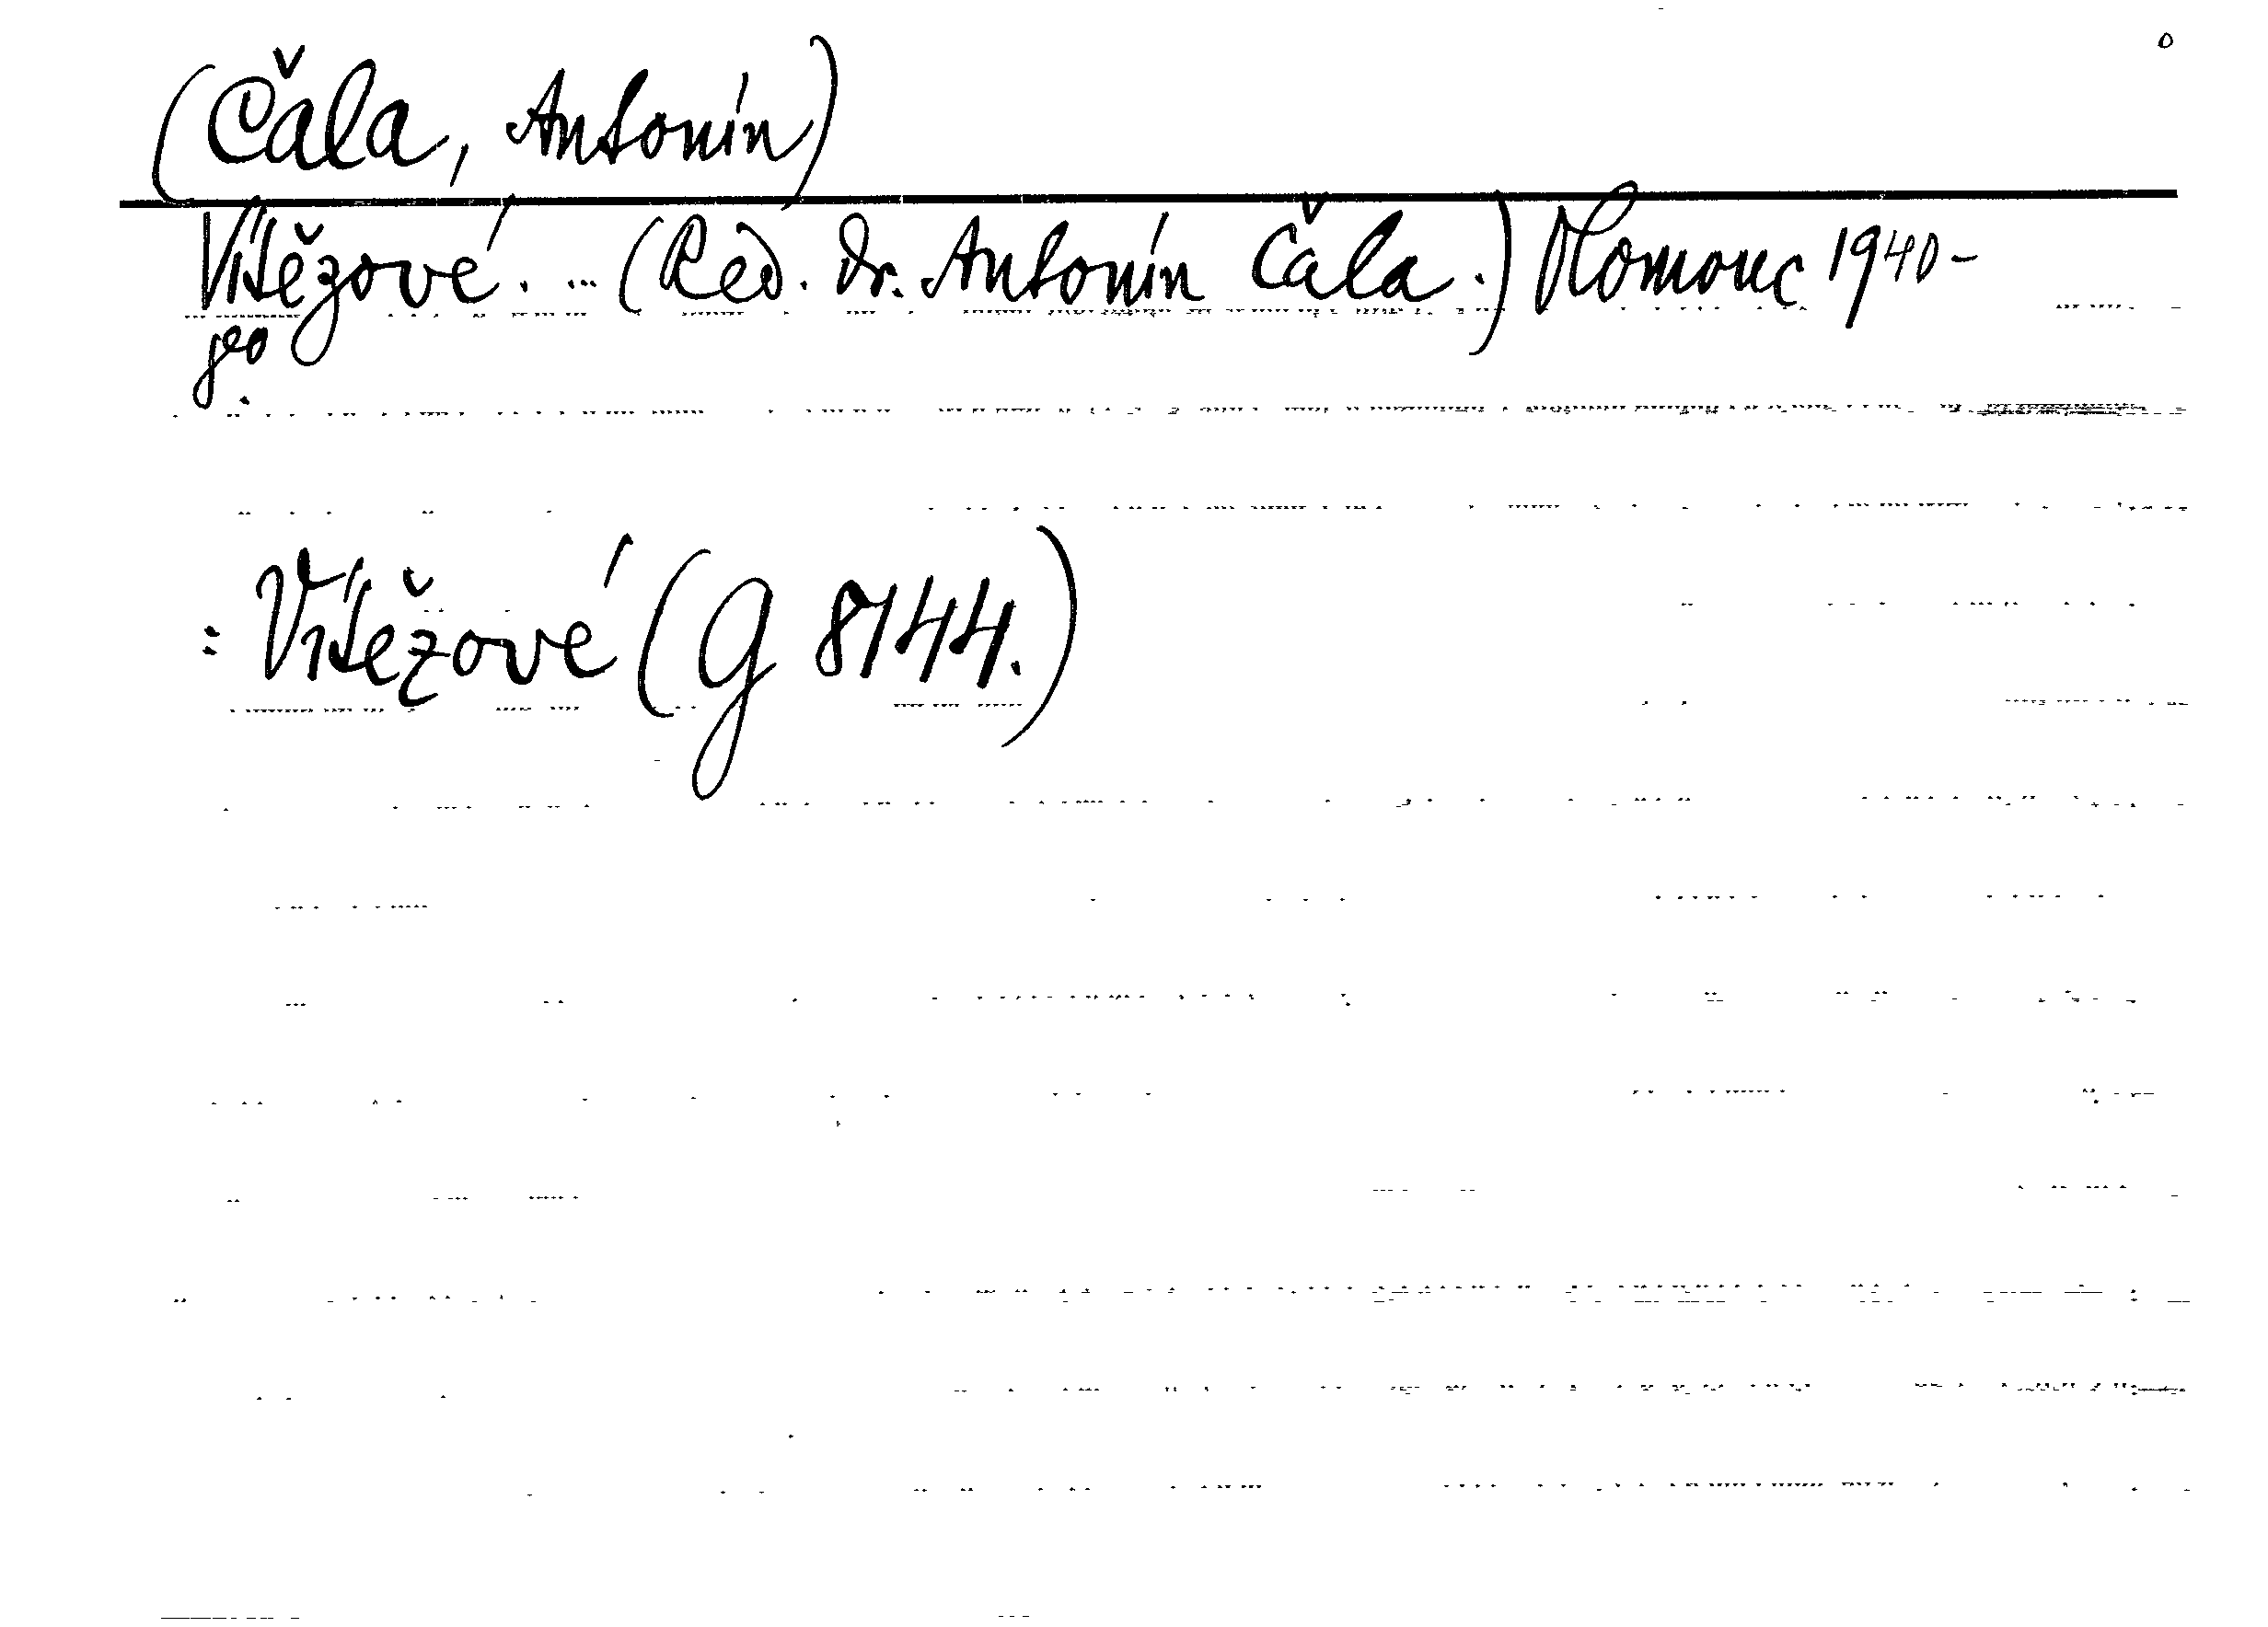 (Čála, Antonín)
Vítězové. ... (Red. Dr. Antonín Čála.) Olomouc 1940-
: Vítězové (G 8144.)